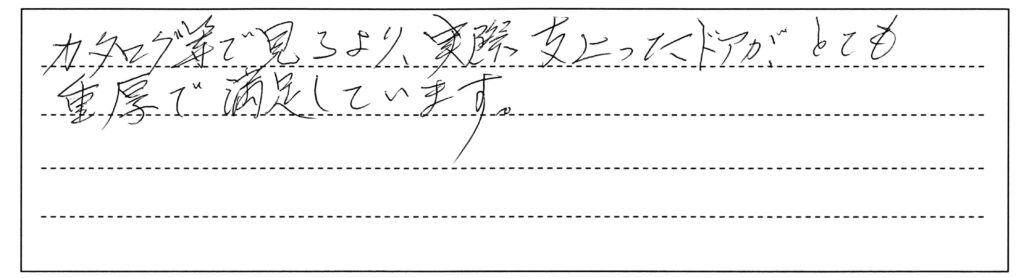 カタログ等で見るより、実際、支上ったドアが、とても
重厚で満足しています。